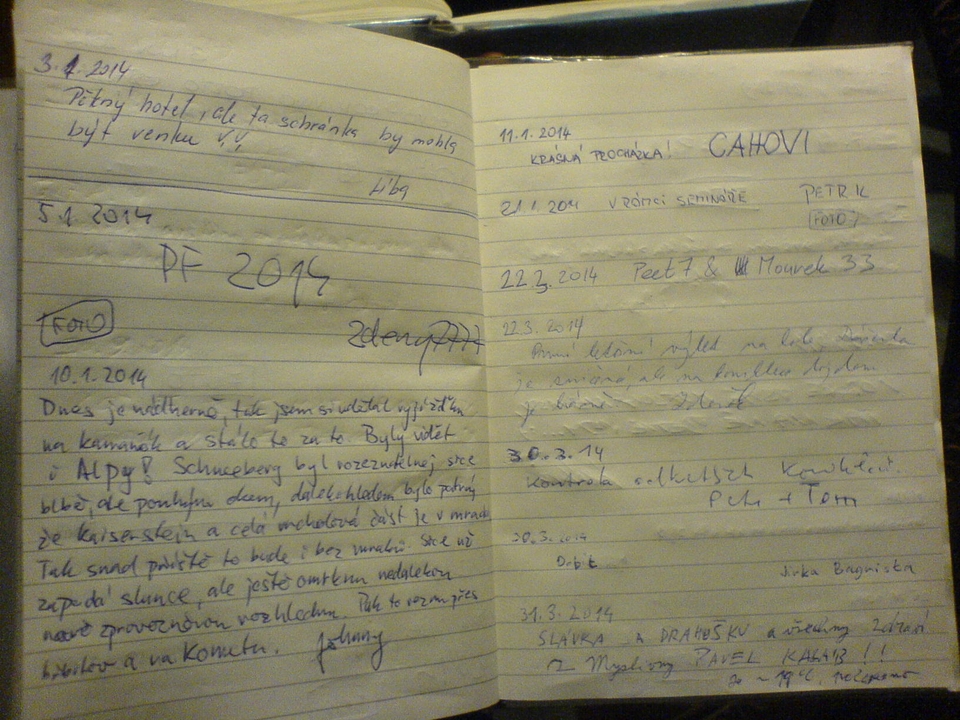 3.1.2014
Pěkný hotel, ale ta schránka by mohla
být venku
Líba
5.1.2014
PF 2014
FOTO
Zdeny7777
10.1.2014
Dnes je nádherně, tak jsem si udělal vyjížďku
na kamaňák a stálo to za to. Byly vidět
i Alpy! Schneeberg byl rozeznatelnej, sice
blbě, ale pouhým okem, dalekohledem bylo patrný
že Kaiserstein a celá vrcholová část je v mracích
Tak snad příště to bude i bez mraků. Sice už
zapadá slunce, ale ještě omrknu nedalekou
nově zprovozněnou rozhlednu. Pak to vezmu přes
a na Kometu. Johnny
11.1.2014
KRÁSNÁ PROCHÁZKA! CAHOVI
21.1.2014 V RÁMCI SEMINÁŘE PETRIK
FOTO
22.2.2014 Peet7 & Mourek33
22.3.2014
První letošní výlet na kole
je ale na
je Zdeněk
30.3.14
Kontrola
Petr + Tom
30.3.2014
Orbit Jirka
31.3.2014
SLÁVKA A DRAHUŠKU a všechny zdraví
z Myslivny PAVEL KALÁB!!
19°C,